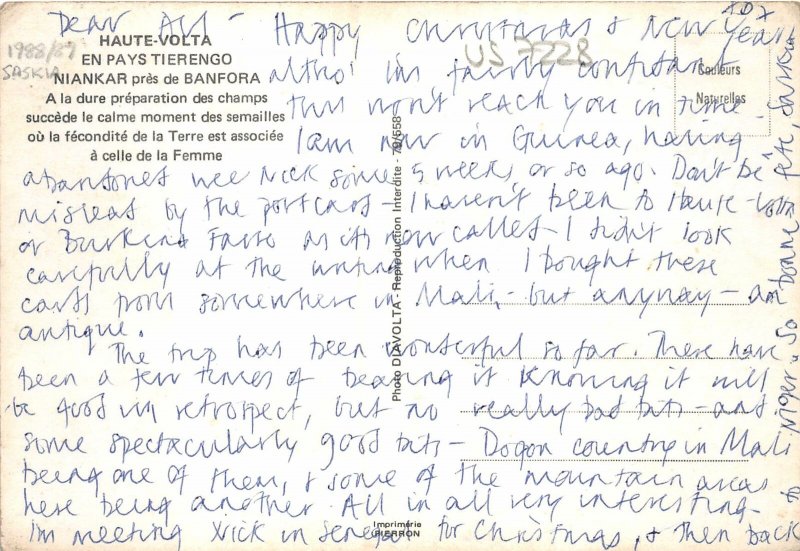 Dear All - Happy Christmas & New Year
altho' I'm fairly confident
this won't reach you in time.
I am now in Guinea, having
abandoned wee Nick some 5 weeks or so ago. Don't be
mislead by the postcard - I haven't been to Haute-Volta
or Burkina Faso as it's now called - I didn't look
carefully at the writing when I bought these
cards from somewhere in Mali, - but anyway - an
antique.
The trip has been wonderful so far. There have
been a few times of bearing it knowing it will
be good in retrospect, but no really bad bits - and
some spectacularly good bits - Dogon country in Mali
being one of them, & some of the mountain areas
here being another. All in all very interesting -
I'm meeting Nick in Senegal for Christmas, & then back
to Niger. So bonne fête, Saskia
HAUTE-VOLTA
EN PAYS TIERENGO
NIANKAR près de BANFORA
A la dure préparation des champs
succède le calme moment des semailles
où la fécondité de la Terre est associée
à celle de la Femme
1988/89
SASKIA
US 7228
Couleurs
Naturelles
Photo DIAVOLTA - Reproduction Interdite - 79/658
Imprimerie
PIERRON